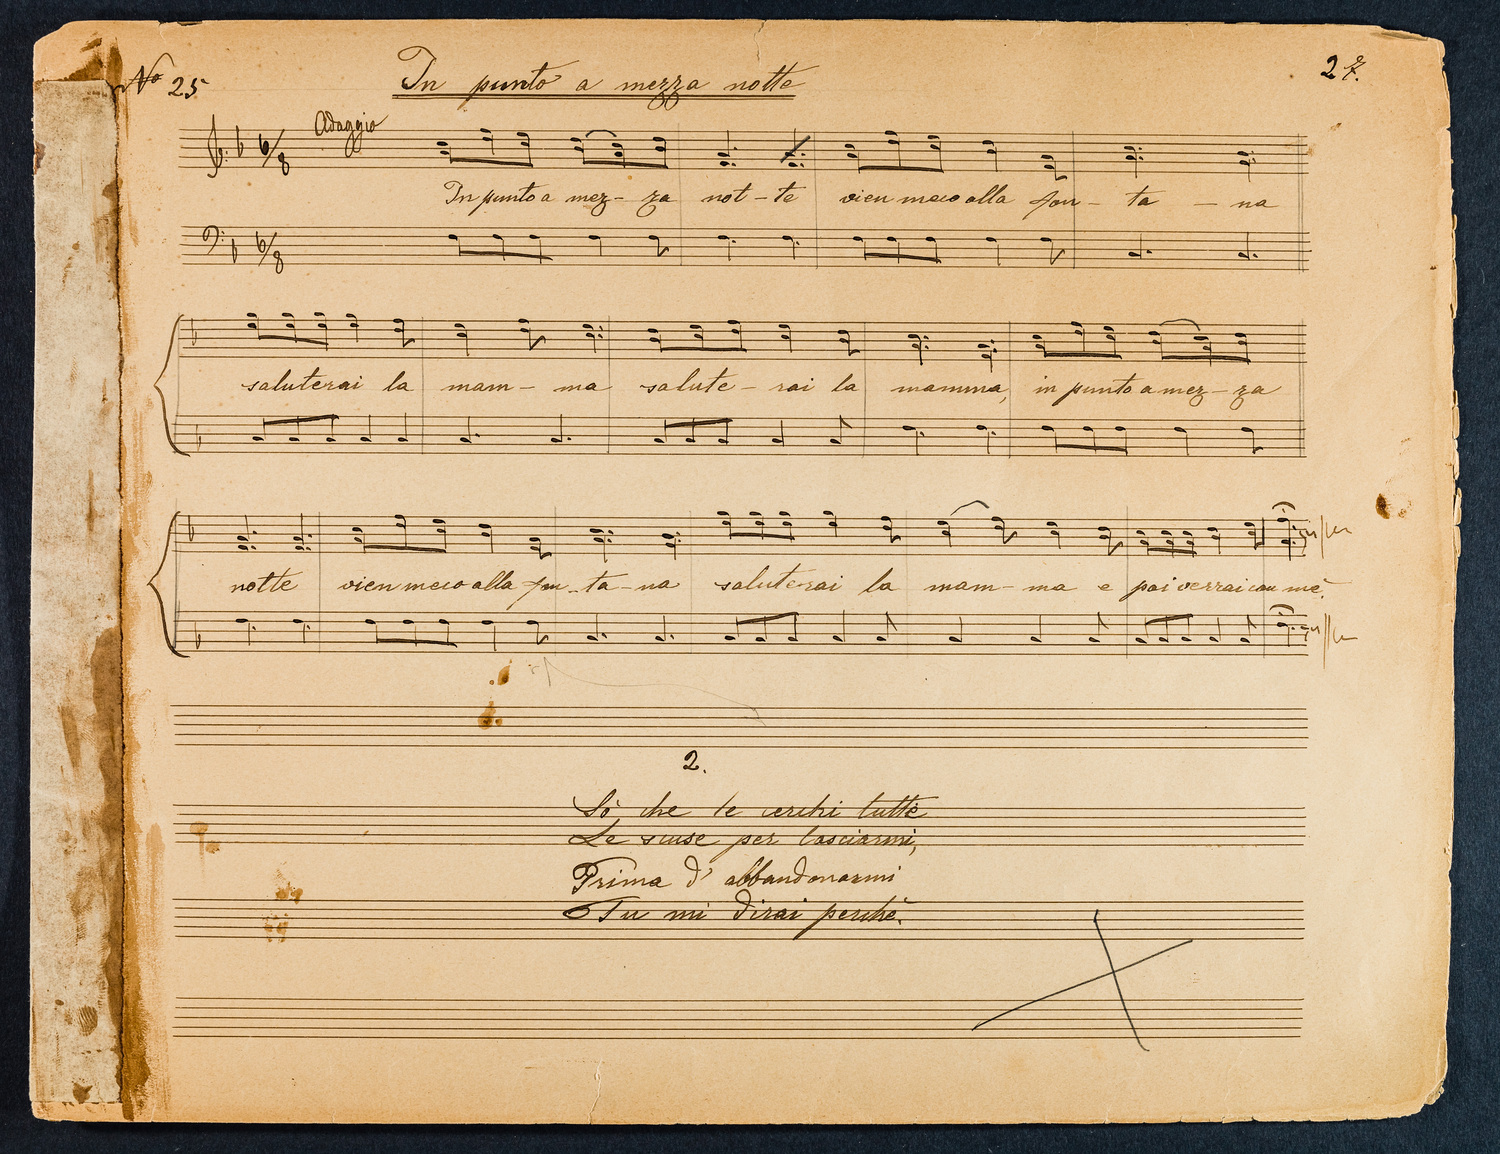 No 25
In punto a mezza notte
27.
Adaggio
6/8
In punto a mez- za not-te vien meco alla fon- ta - na
6/8
saluterai la mam- ma salute- rai la mamma, in punto a mez- za
notte vien meco alla fon-ta-na saluterai la mam- ma e poi verrai con me.
2.
Sò che le cerchi tutte
Le scuse per lasciarmi,
Prima d' abbandonarmi
Tu mi dirai perchè.